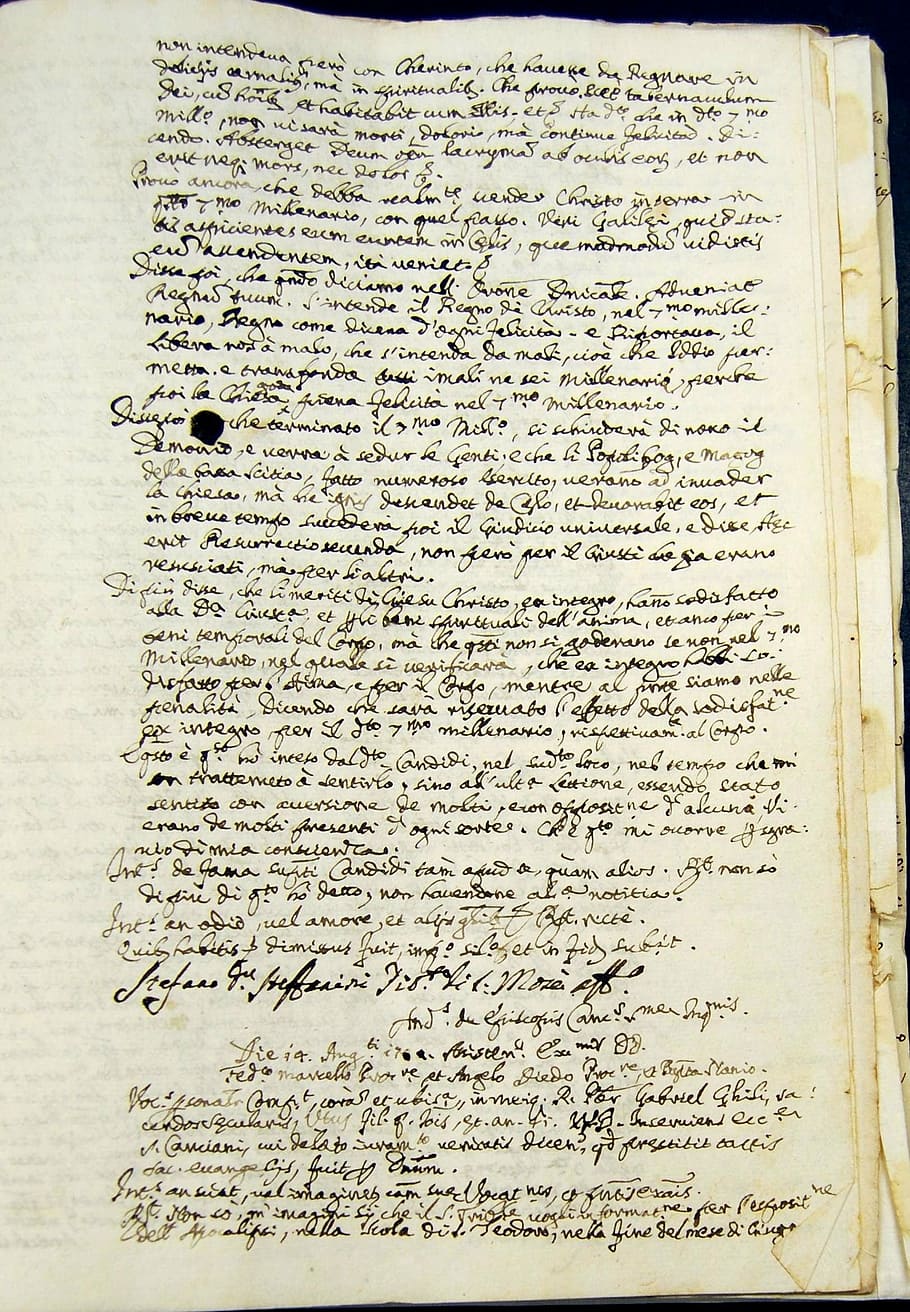 non intendeva però con Cherinto, che havesse da Regnare in
delitijs carnalib, mà in spiritualib. Che provò. Ecce tabernaculum
Dei, cū hoīb, et habitabit cum illis. et sta dto che in dto 7mo
Millo, non vi sarà morti, dolori, mà continue felicità. Di:
cendo. Absterget Deum oēm lacrymā ab oculis eoꝝ, et non
erit neqꝫ mors, nec dolor
Provò ancora, che debba realmte vender Christo in terra in
qsto 7mo Millenario, con quel passo. Viri Galilei, quid sta:
tis aspicientes eum euntem in Celū, quemadmodū vidistis
eū ascendentem, ità veniet.
Disse poi, che qndo diciamo nell' Oraōne Dnicale. Adveniat
Regnū tuum. S'intende il Regno di Christo, nel 7mo mille:
nario, Regno come diceva d'ogni felicità. e Riportava, il
Libera nos à malo, che s'intenda da mali, cioè che Iddio per:
metta. e transfonda tutti i mali ne sei Millenarij, perche
poi la Chiesa goda piena felicità nel 7mo Millenario.
Disse poi che terminato il 7mo Millo, si schiuderà di novo il
Demonio, e verrà à sedur le Genti. e che li Popoli Gog, e Magog
della bassa Scitia, fatto numeroso esercito, verano ad invader
la Chiesa, mà che ignis descendet de Celo, et devorabit eos, et
in breve tempo succederà poi il Giudicio universale, e disse, Hec
erit Resurrectio secunda, non però per il Giusti che già erano
resusciati, mà per li altri.
Di più disse, che li meriti di Giesù Christo, ex integro, hano sodisfatto
alla Da Giusta, et per li beni spirituali dell'anima, et anco per i
beni temporali del Corpo, mà che qsti non si goderano se non nel 7mo
Millenario, nel quale si verificarà, che ex integro habbi So:
disfatto per l'Anima, e per il Corpo, mentre al pnte siamo nelle
penalità, dicendo che sarà riservato l'effetto della sodisfatne
ex integro, per il dto 7mo millenario, rispettivamte al Corpo.
E qsto è qto hò inteso dal dto Candidi, nel sudto loco, nel tempo che mi
son trattenuto à sentirlo, sino all'ultª Lettione, essendo stato
sentito con aversione de molti, e con oppositne d'alcuni, Vi
erano de molti presenti d'ogni sorte. Ch'è qto mi ocorre p sgra:
vio di mia conscienza.
Ints de fama supti Candidi tàm apud se, quàm alios. Rt. non sò
di più di qto hò detto, non havendone alª notitia.
Ints an odio, vel amore, et alijs glib Rt. rectè.
Quib habitis dimissus fuit, impo silo et in fid subst.
Stefano
Ands de Episcopis Cancs
Die 14. Augti Assisten Exmis DD.
Fedco Marcello Procre, et Angelo Diedo Procre, et Bpta Nanio.
Vocs psonalr Compt, corā et ubi sª, in meiq. R. Pbr Gabriel Ghili, sa:
cerdos secularis, Vtus fil. q. Iōis, et. an. Inserviens ecclª
S. Canciani, cui delato iuramto veritatis dicen, qd prestitit tactis
sac. evangelijs, fuit p Dnūm.
Ints an sciat, vel imaginet cām sue Vocatnis, et pntis exāis.
Rt. Non so, m'imagini sij che il S. Trible vogli informatne per l'espositne
dell'Apocalipsi, nella scola di S. Teodoro, nella fine del mese di Giugo